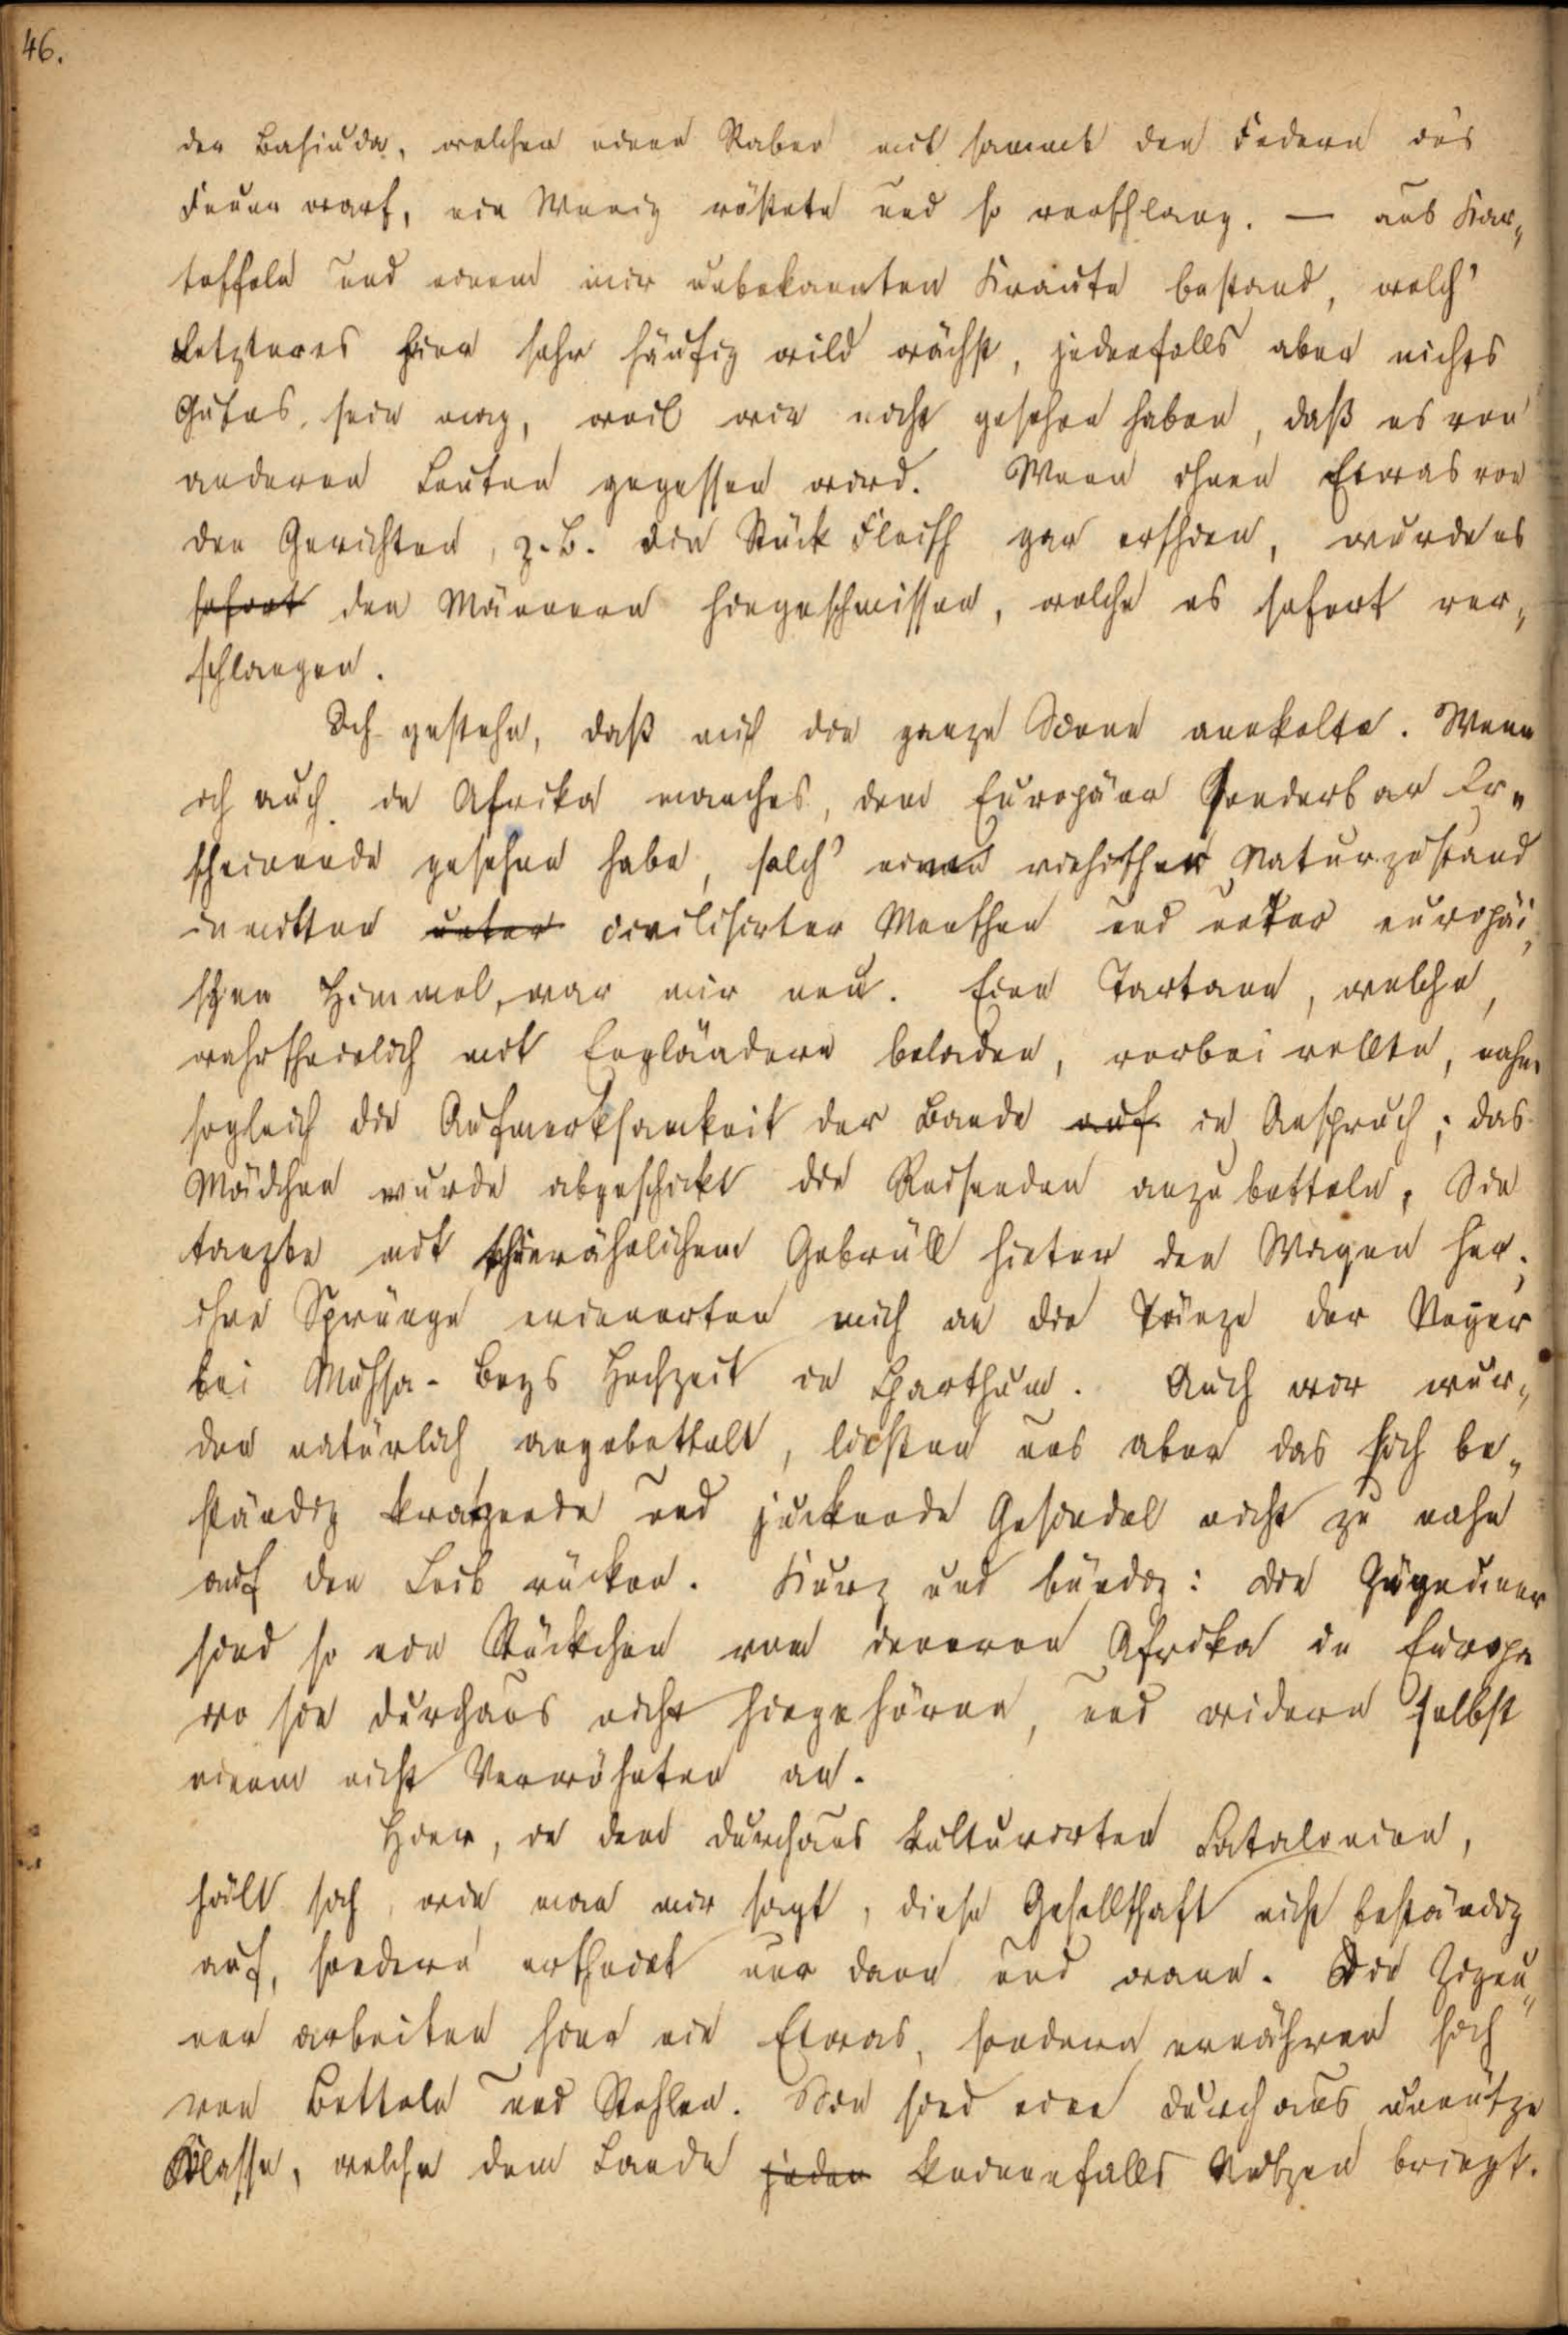 46.
der Bahiuda, welcher einen Raben mit sammt den Federn ins
Feuer warf, ein Wenig röstete und so verschlang. — aus Kar„
toffeln und einem mir unbekannten Kraute bestand, welch'
Letzteres hier sehr häufig wild wächst, jedenfalls aber nichts
Gutes sein mag, weil wir nicht gesehen haben, daß es von
anderen Leuten gegessen wird. Wenn ihnen Etwas von
den Gerichten, z. B. ein Stück Fleisch gar erschien, wurde es
sofort den Männern hingeschmissen, welche es sofort ver„
schlangen.
Ich gestehe, daß mich die ganze Scene anekelte. Wenn
ich auch in Afrika manches, dem Europäer Sonderbar Er„
scheinende gesehen habe, solch' einen viehischen Naturzustand
inmitten unter civilisirter Menschen und unter europäi„
schen Himmel, war mir neu. Eine Tartane, welche,
wahrscheinlich mit Engländern beladen, vorbei rollte, nahm
sogleich die Aufmerksamkeit der Bande auf in Anspruch; das
Mädchen wurde abgeschickt die Reisenden anzubetteln. Sie
tanzte mit thierähnlichem Gebrüll hinter den Wagen her;
ihre Sprünge erinnerten mich an die Tänze der Neger
bei Muhsa-Beys Hochzeit in Charthum. Auch wir wur„
den natürlich angebettelt, ließen uns aber das sich be„
ständig kratzende und juckende Gesindel nicht zu nahe
auf den Leib rücken. Kurz und bündig: die Zigeuner
sind so ein Stückchen vom inneren Afrika in Europa
wo sie durchaus nicht hingehören, und widern selbst
einem nicht Verwöhnten an.
Hier, in dem durchaus kultivirten Catalonien,
hält sich, wie man mir sagt, diese Gesellschaft nicht beständig
auf, sondern erscheint nur dann und wann. Die Zigeu„
ner arbeiten hier nie Etwas, sondern ernähren sich
von Betteln und Stehlen. Sie sind eine durchaus unnütze
Klasse, welche dem Lande jeden keinenfalls Nutzen bringt.